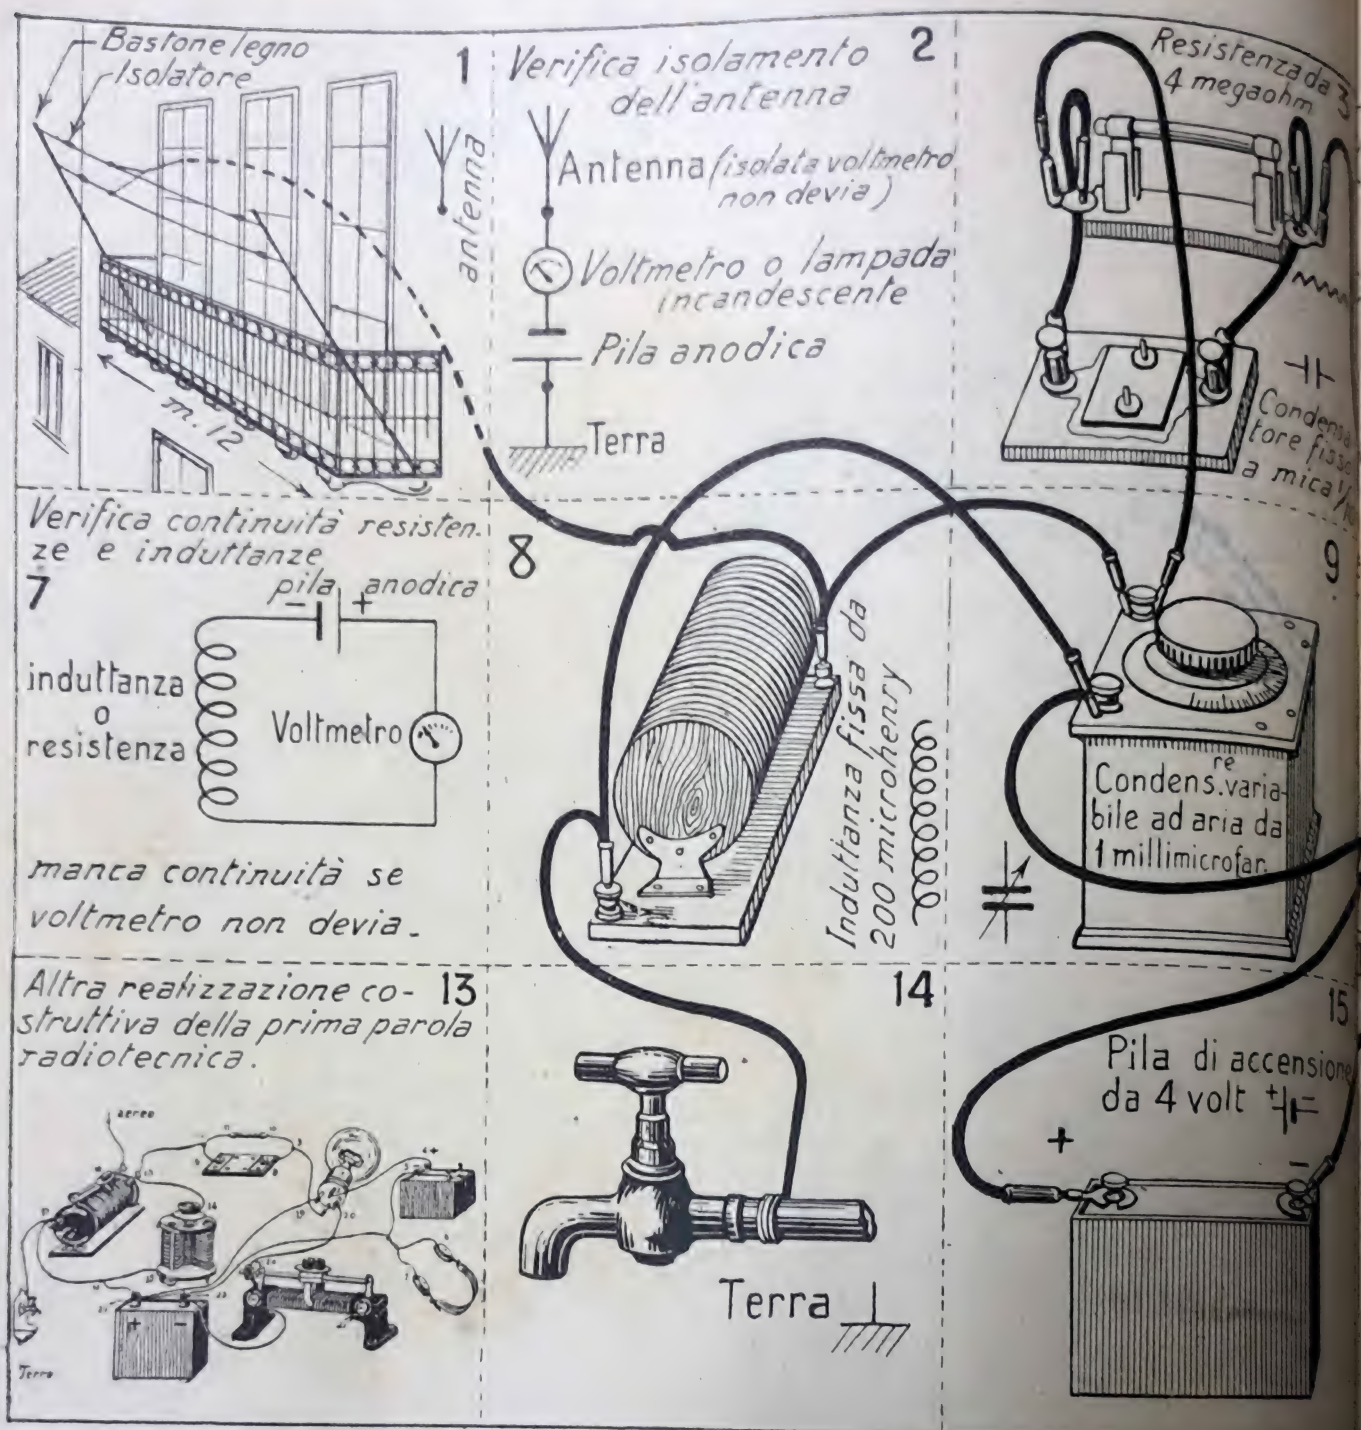 Bastone legno
Isolatore
1
antenna
m. 12
Verifica isolamento
dell'antenna
2
Antenna (isolata voltmetro
non devia)
Voltmetro o lampada
incandescente
Pila anodica
Terra
Resistenza da
4 megaohm
3
Condensa
tore fisso
a mica
Verifica continuità resisten-
ze e induttanze
7
pila anodica
- +
induttanza
o
resistenza
Voltmetro
manca continuità se
voltmetro non devia.
8
Induttanza fissa da
200 microhenry
9
Condens.re varia-
bile ad aria da
1 millimicrofar.
Altra realizzazione co-
struttiva della prima parola
radiotecnica.
13
aereo
+ -
Terra
14
Terra
15
Pila di accensione
da 4 volt + -
+ -